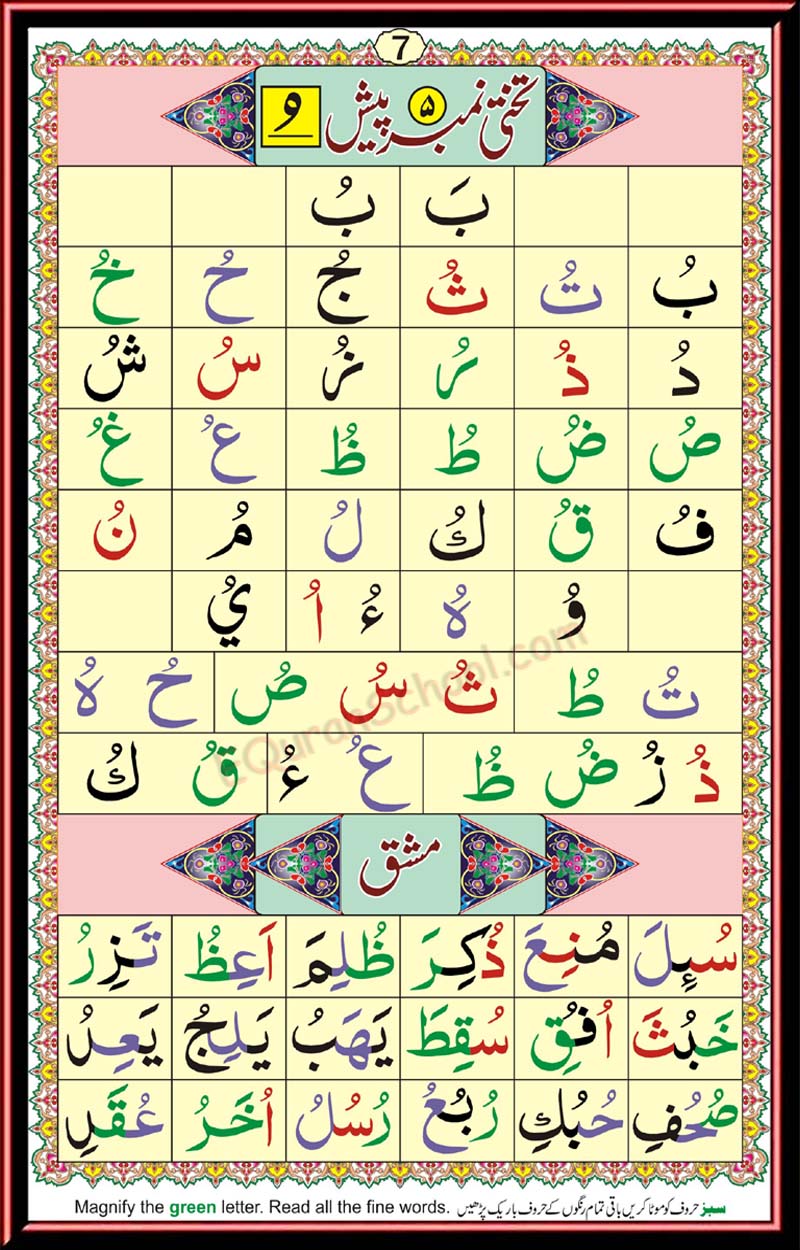 7
تختی نمبر ۵ پیش ُ
بَ بُ
بُ تُ ثُ جُ حُ خُ
دُ ذُ رُ زُ سُ شُ
صُ ضُ طُ ظُ عُ غُ
فُ قُ كُ لُ مُ نُ
وُ هُ ءُ اُ يُ
تُ طُ ثُ سُ صُ حُ هُ
ذُ زُ ضُ ظُ عُ ءُ قُ كُ
EQuranSchool.com
مشق
سُئِلَ مُنِعَ ذُكِرَ ظُلِمَ اَعِظُ تَزِرُ
خَبُثَ اُفُقِ سُقِطَ يَهَبُ يَلِجُ يَعِدُ
صُحُفِ حُبُكِ رُبُعُ رُسُلُ اُخَرُ عُقَدِ
سبز حروف کو موٹا کریں باقی تمام رنگوں کے حروف باریک پڑھیں
Magnify the green letter. Read all the fine words.